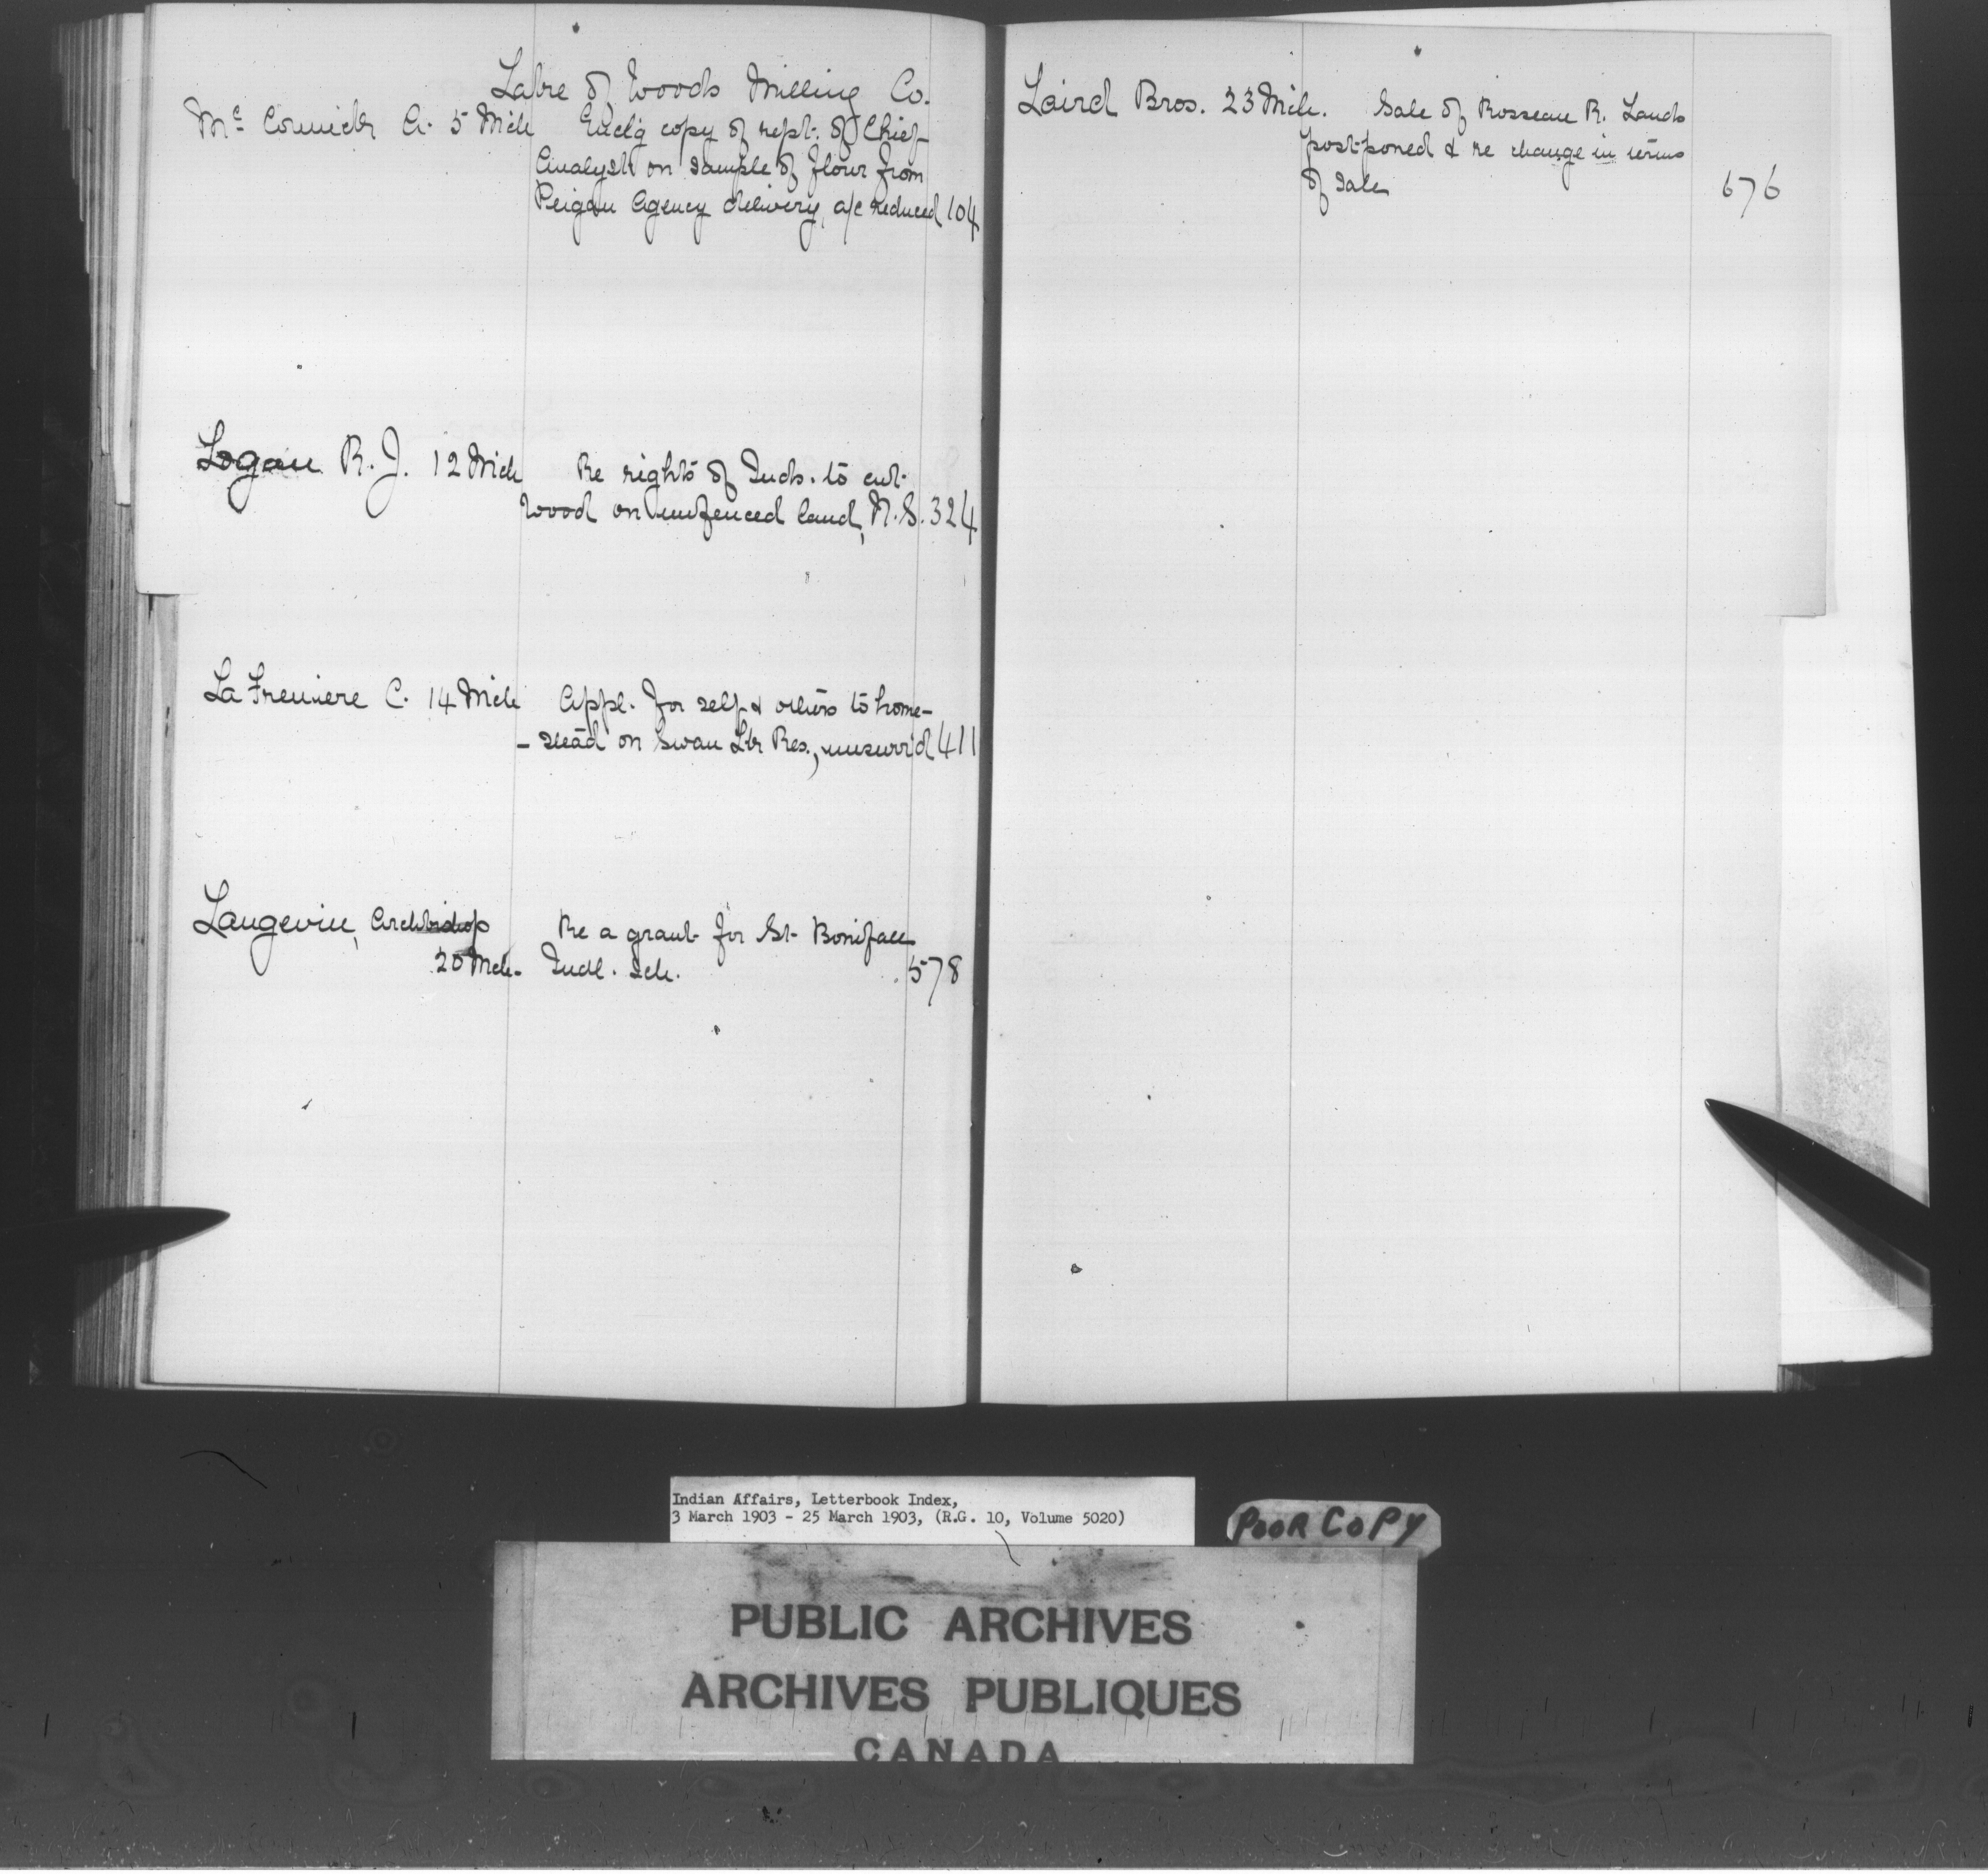 Lake of Woods Milling Co.
Mc Cormick A. 5 Mch Enclg copy of rept. of Chief
Analyst on sample of flour from
Peigan Agency delivery, a/c reduced 104
Logan R. J. 12 Mch Re rights of Inds. to cut
wood on unfenced land, N.S. 324
La Freniere C. 14 Mch Appl. for self & others to home-
- stead on Swan Lk Res., unsurr'd 411
Langevin, Archbishop Re a grant for St. Boniface
20 Mch. Indl. Sch. 578
Laird Bros. 23 Mch. Sale of Rosseau R. Lands
postponed & re change in terms
of sale 676
Indian Affairs, Letterbook Index,
3 March 1903 - 25 March 1903, (R.G. 10, Volume 5020)
POOR COPY
PUBLIC ARCHIVES
ARCHIVES PUBLIQUES
CANADA